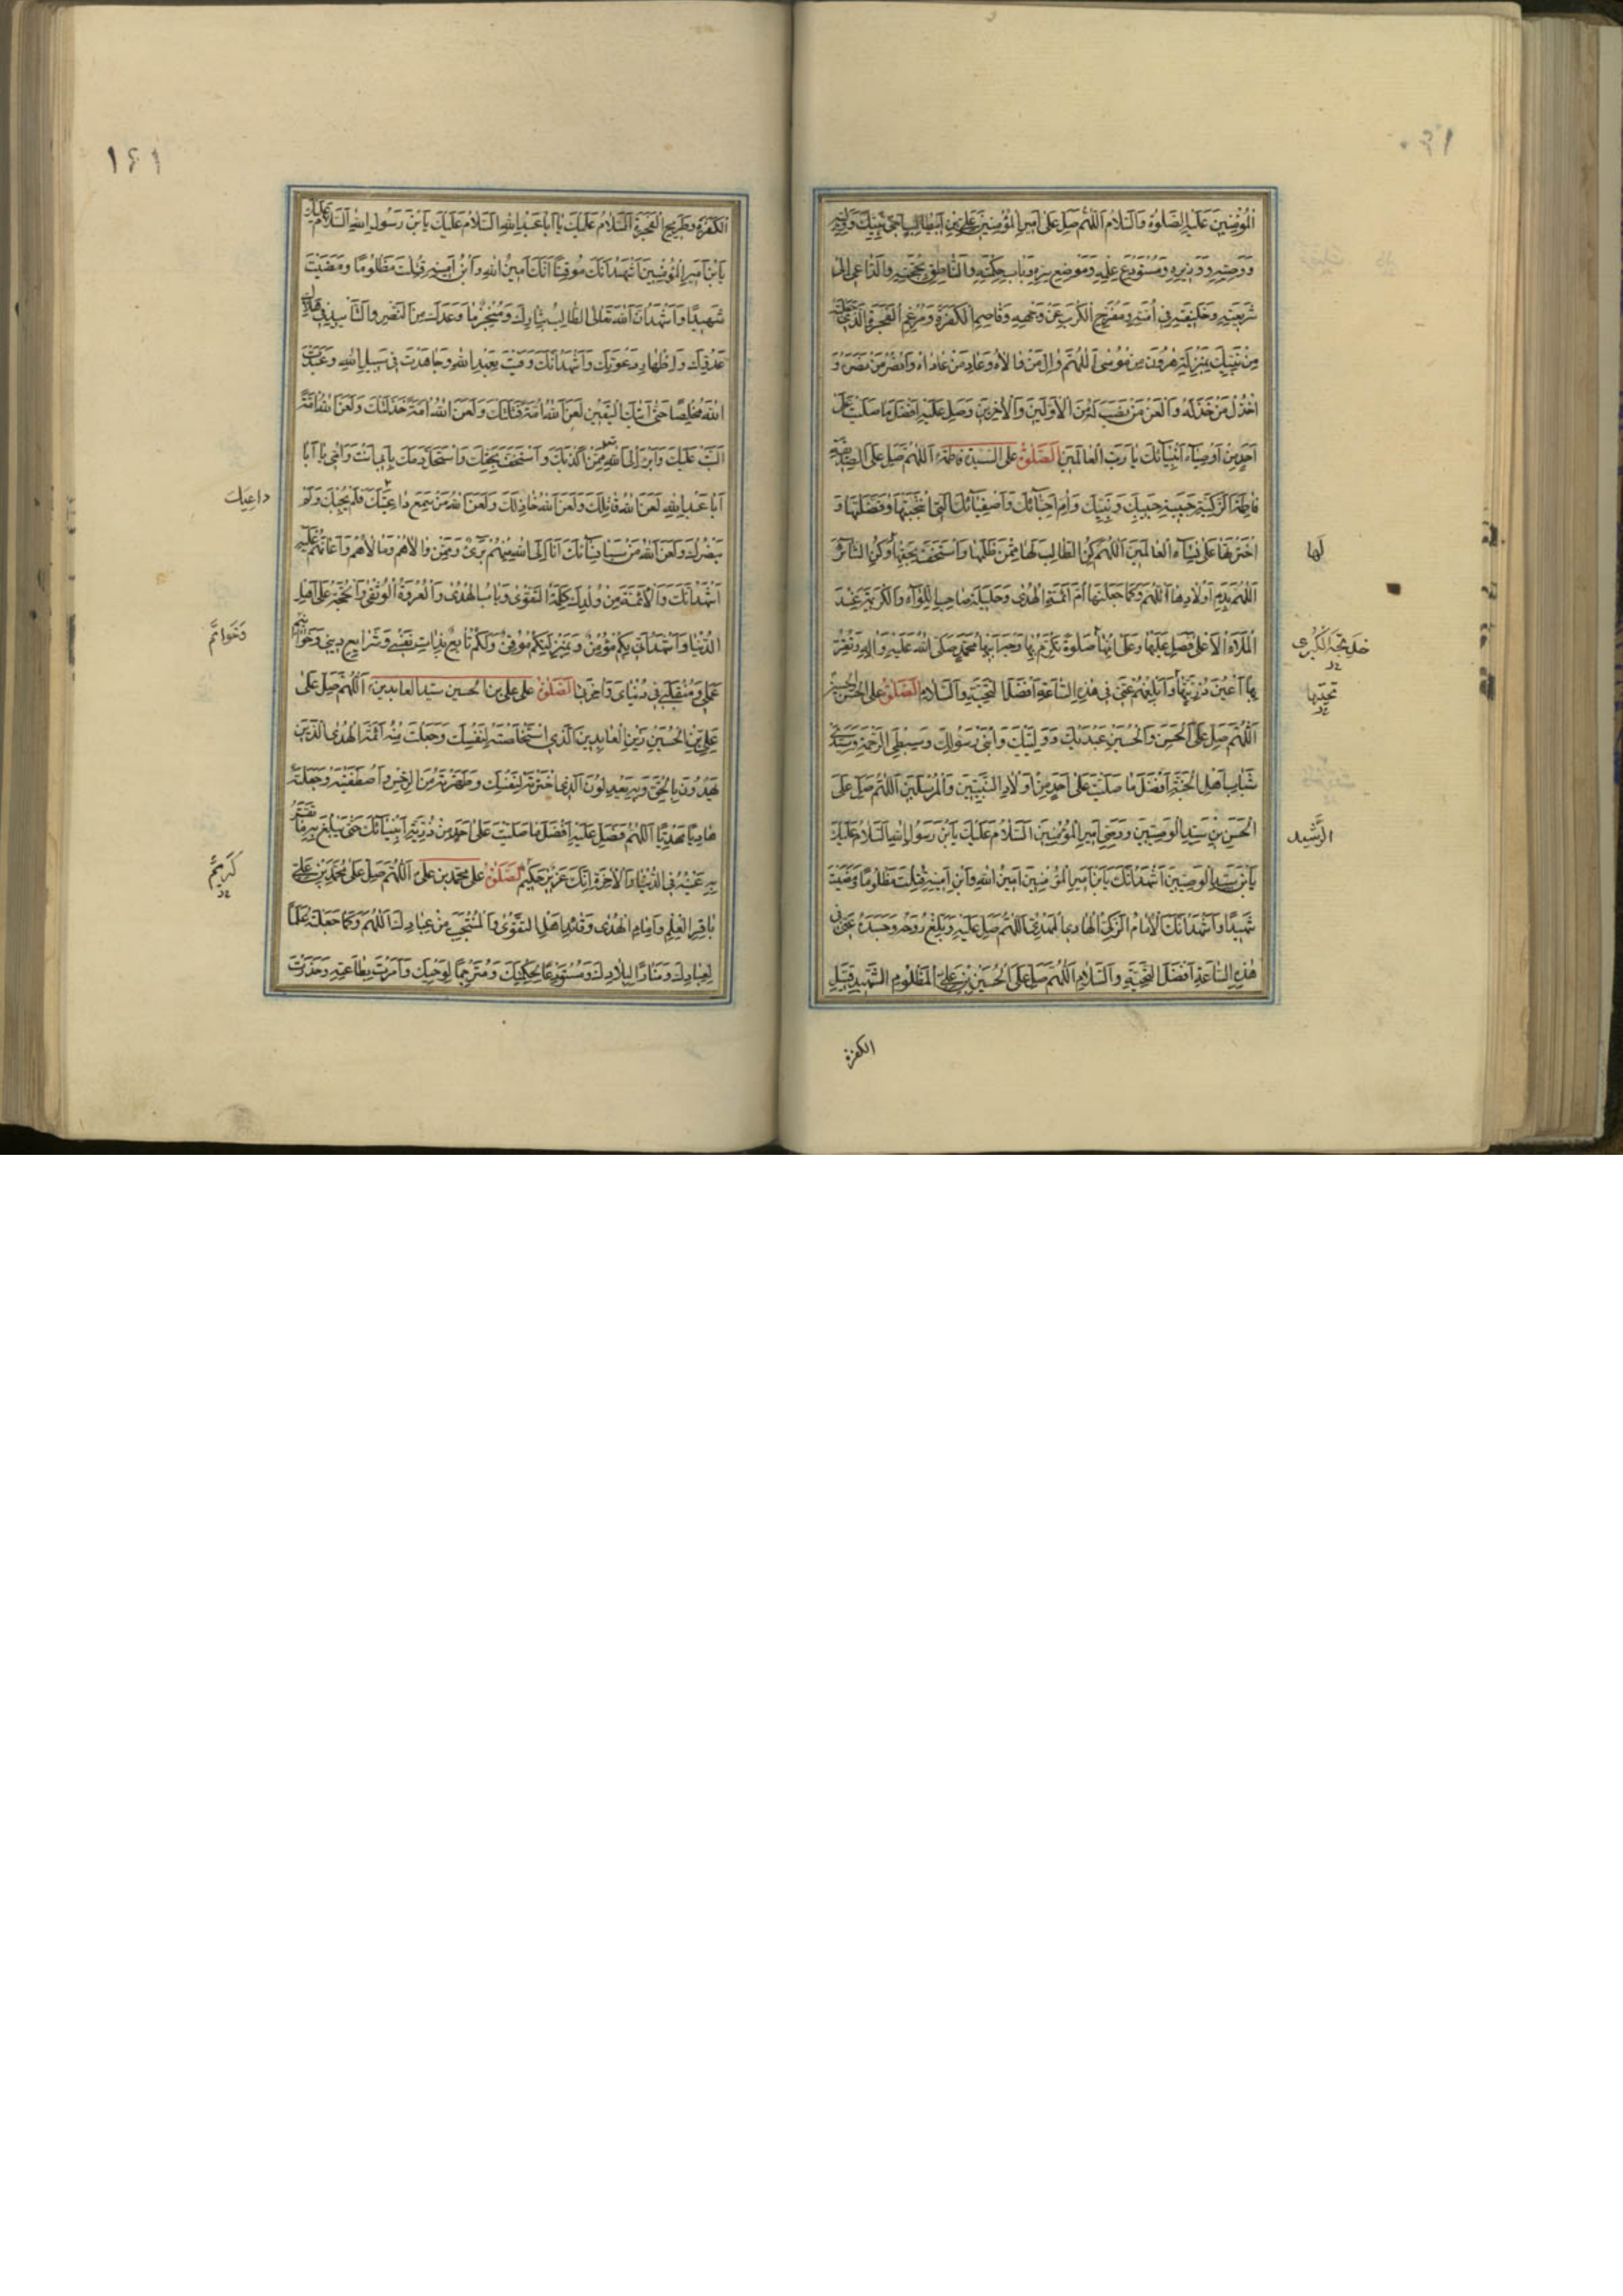 المُؤْمِنِينَ عَلَيْهِ الصَّلوٰةُ وَالسَّلامُ اَللّٰهُمَّ صَلِّ عَلىٰ اَمِيرِ الْمُؤْمِنِينَ عَلِيِّ بْنِ اَبيطالِبٍ اَخِي نَبِيِّكَ وَوَلِيِّهِ
وَوَصِيِّهِ وَوَزيرِهِ وَمُسْتَوْدَعِ عِلْمِهِ وَمَوْضِعِ سِرِّهِ وَبابِ حِكْمَتِهِ وَالنّاطِقِ بِحُجَّتِهِ وَالدّاعي اِلىٰ
شَريعَتِهِ وَخَليفَتِهِ في اُمَّتِهِ وَمُفَرِّجِ الْكَرْبِ عَنْ وَجْهِهِ وَقاصِمِ الْكَفَرَةِ وَمُرْغِمِ الْفَجَرَةِ الَّذي جَعَلْتَهُ
مِنْ نَبِيِّكَ بِمَنْزِلَةِ هٰرُونَ مِنْ مُوسىٰ اَللّٰهُمَّ وَالِ مَنْ والاهُ وَعادِ مَنْ عاداهُ وَانْصُرْ مَنْ نَصَرَهُ وَ
اخْذُلْ مَنْ خَذَلَهُ وَالْعَنْ مَنْ نَصَبَ لَهُ مِنَ الْاَوَّلينَ وَالْاٰخِرينَ وَصَلِّ عَلَيْهِ اَفْضَلَ ما صَلَّيْتَ عَلىٰ
اَحَدٍ مِنْ اَوْصِياءِ اَنْبِيائِكَ يا رَبَّ الْعالَمينَ اَلصَّلوٰةُ على السيدة فاطمة اَللّٰهُمَّ صَلِّ عَلَى الصِّدّيقَةِ
فاطِمَةَ الزَّكِيَّةِ حَبيبَةِ حَبيبِكَ وَنَبِيِّكَ وَاُمِّ اَحِبّائِكَ وَاَصْفِيائِكَ الَّتِي انْتَجَبْتَها وَفَضَّلْتَها وَ
اخْتَرْتَها عَلىٰ نِساءِ الْعالَمينَ اَللّٰهُمَّ كُنِ الطّالِبَ لَها مِمَّنْ ظَلَمَها وَاسْتَخَفَّ بِحَقِّها وَكُنِ الثّائِرَ
لَها
اللّٰهُمَّ بِدَمِ اَوْلادِها اَللّٰهُمَّ وَكَما جَعَلْتَها اُمَّ اَئِمَّةِ الْهُدىٰ وَحَليلَةَ صاحِبِ اللِّواءِ وَالْكَريمَةَ عِنْدَ
الْمَلَاءِ الْاَعْلىٰ فَصَلِّ عَلَيْها وَعَلىٰ اُمِّها صَلوٰةً تُكْرِمُ بِها وَجْهَ اَبيها مُحَمَّدٍ صَلَّى اللهُ عَلَيْهِ وَاٰلِهِ وَتُقِرُّ
خَديجَةَ الْكُبْرى
بِها اَعْيُنَ ذُرِّيَّتِها وَاَبْلِغْهُمْ عَنّي في هٰذِهِ السّاعَةِ اَفْضَلَ التَّحِيَّةِ وَالسَّلامِ اَلصَّلوٰةُ على الحسن والحسين
اَللّٰهُمَّ صَلِّ عَلَى الْحَسَنِ وَالْحُسَيْنِ عَبْدَيْكَ وَوَلِيَّيْكَ وَابْنَيْ رَسُولِكَ وَسِبْطَيِ الرَّحْمَةِ وَسَيِّدَيْ
شَبابِ اَهْلِ الْجَنَّةِ اَفْضَلَ ما صَلَّيْتَ عَلىٰ اَحَدٍ مِنْ اَوْلادِ النَّبِيّينَ وَالْمُرْسَلينَ اَللّٰهُمَّ صَلِّ عَلَى
الْحَسَنِ بْنِ سَيِّدِ الْوَصِيّينَ وَوَصِيِّ اَميرِ الْمُؤْمِنينَ اَلسَّلامُ عَلَيْكَ يَابْنَ رَسُولِ اللهِ اَلسَّلامُ عَلَيْكَ
الرَّشيد
يَابْنَ سَيِّدِ الْوَصِيّينَ اَشْهَدُ اَنَّكَ يَابْنَ اَميرِ الْمُؤْمِنينَ اَمينُ اللهِ وَابْنُ اَمينِهِ قُتِلْتَ مَظْلُومًا وَمَضَيْتَ
شَهيدًا وَاَشْهَدُ اَنَّكَ الْاِمامُ الزَّكِيُّ الْهادِي الْمَهْدِيُّ اَللّٰهُمَّ صَلِّ عَلَيْهِ وَبَلِّغْ رُوحَهُ وَجَسَدَهُ عَنّي في
هٰذِهِ السّاعَةِ اَفْضَلَ التَّحِيَّةِ وَالسَّلامِ اَللّٰهُمَّ صَلِّ عَلَى الْحُسَيْنِ بْنِ عَلِيٍّ الْمَظْلُومِ الشَّهيدِ قَتيلِ
الكفرة
١٤١
الْكَفَرَةِ وَطَريحِ الْفَجَرَةِ اَلسَّلامُ عَلَيْكَ يا اَبا عَبْدِ اللهِ اَلسَّلامُ عَلَيْكَ يَابْنَ رَسُولِ اللهِ اَلسَّلامُ عَلَيْكَ
يَابْنَ اَميرِ الْمُؤْمِنينَ اَشْهَدُ اَنَّكَ مُوقِنًا اَنَّكَ اَمينُ اللهِ وَابْنُ اَمينِهِ قُتِلْتَ مَظْلُومًا وَمَضَيْتَ
شَهيدًا وَاَشْهَدُ اَنَّ اللهَ تَعالَى الطّالِبُ بِثارِكَ وَمُنْجِزٌ ما وَعَدَكَ مِنَ النَّصْرِ وَالتَّأْييدِ في هَلاكِ
عَدُوِّكَ وَاِظْهارِ دَعْوَتِكَ وَاَشْهَدُ اَنَّكَ وَفَيْتَ بِعَهْدِ اللهِ وَجاهَدْتَ في سَبيلِ اللهِ وَعَبَدْتَ
اللهَ مُخْلِصًا حَتّىٰ اَتٰيكَ الْيَقينُ لَعَنَ اللهُ اُمَّةً قَتَلَتْكَ وَلَعَنَ اللهُ اُمَّةً خَذَلَتْكَ وَلَعَنَ اللهُ اُمَّةً
اَلَّبَتْ عَلَيْكَ وَاَبْرَءُ اِلَى اللهِ مِمَّنْ اَكْذَبَكَ وَاسْتَخَفَّ بِحَقِّكَ وَاسْتَحَلَّ دَمَكَ بِاَبي اَنْتَ وَاُمّي يا اَبا
اَبا عَبْدِ اللهِ لَعَنَ اللهُ قاتِلَكَ وَلَعَنَ اللهُ خاذِلَكَ وَلَعَنَ اللهُ مَنْ سَمِعَ داعِيَتَكَ فَلَمْ يُجِبْكَ وَلَمْ
داعِيَك
يَنْصُرْكَ وَلَعَنَ اللهُ مَنْ سَبا نِسائَكَ اَنَا اِلَى اللهِ مِنْهُمْ بَريٌ وَمِمَّنْ والاهُمْ وَمالَاهُمْ وَاَعانَهُمْ عَلَيْهِ
اَشْهَدُ اَنَّكَ وَالْاَئِمَّةَ مِنْ وُلْدِكَ كَلِمَةُ التَّقْوىٰ وَبابُ الْهُدىٰ وَالْعُرْوَةُ الْوُثْقىٰ وَالْحُجَّةُ عَلىٰ اَهْلِ
الدُّنْيا وَاَشْهَدُ اَنّي بِكُمْ مُؤْمِنٌ وَبِمَنْزِلَتِكُمْ مُوقِنٌ وَلَكُمْ تابِعٌ بِذاتِ نَفْسي وَشَرايِعِ ديني وَخَواتيمِ
وَخَواتِمِ
عَمَلي وَمُنْقَلَبي في دُنْيايَ وَاٰخِرَتي اَلصَّلوٰةُ على علي بن الحسين سيد العابدين اَللّٰهُمَّ صَلِّ عَلىٰ
عَلِيِّ بْنِ الْحُسَيْنِ زَيْنِ الْعابِدينَ الَّذي اسْتَخْلَصْتَهُ لِنَفْسِكَ وَجَعَلْتَ مِنْهُ اَئِمَّةَ الْهُدىٰ الَّذينَ
يَهْدُونَ بِالْحَقِّ وَبِهِ يَعْدِلُونَ الَّذي اخْتَرْتَهُ لِنَفْسِكَ وَطَهَّرْتَهُ مِنَ الرِّجْسِ وَاصْطَفَيْتَهُ وَجَعَلْتَهُ
هادِيًا مَهْدِيًّا اَللّٰهُمَّ فَصَلِّ عَلَيْهِ اَفْضَلَ ما صَلَّيْتَ عَلىٰ اَحَدٍ مِنْ ذُرِّيَّةِ اَنْبِيائِكَ حَتّىٰ يَبْلُغَ بِهِ ما تَقَرُّ
بِهِ عَيْنُهُ فِي الدُّنْيا وَالْاٰخِرَةِ اِنَّكَ عَزيزٌ حَكيمٌ اَلصَّلوٰةُ على محمد بن علي اَللّٰهُمَّ صَلِّ عَلىٰ مُحَمَّدِ بْنِ عَلِيٍّ
كَريمٌ
باقِرِ الْعِلْمِ وَاِمامِ الْهُدىٰ وَقائِدِ اَهْلِ التَّقْوىٰ وَالْمُنْتَجَبِ مِنْ عِبادِكَ اَللّٰهُمَّ وَكَما جَعَلْتَهُ عَلَمًا
لِعِبادِكَ وَمَنارًا لِبِلادِكَ وَمُسْتَوْدَعًا لِحِكْمَتِكَ وَمُتَرْجِمًا لِوَحْيِكَ وَاَمَرْتَ بِطاعَتِهِ وَحَذَّرْتَ